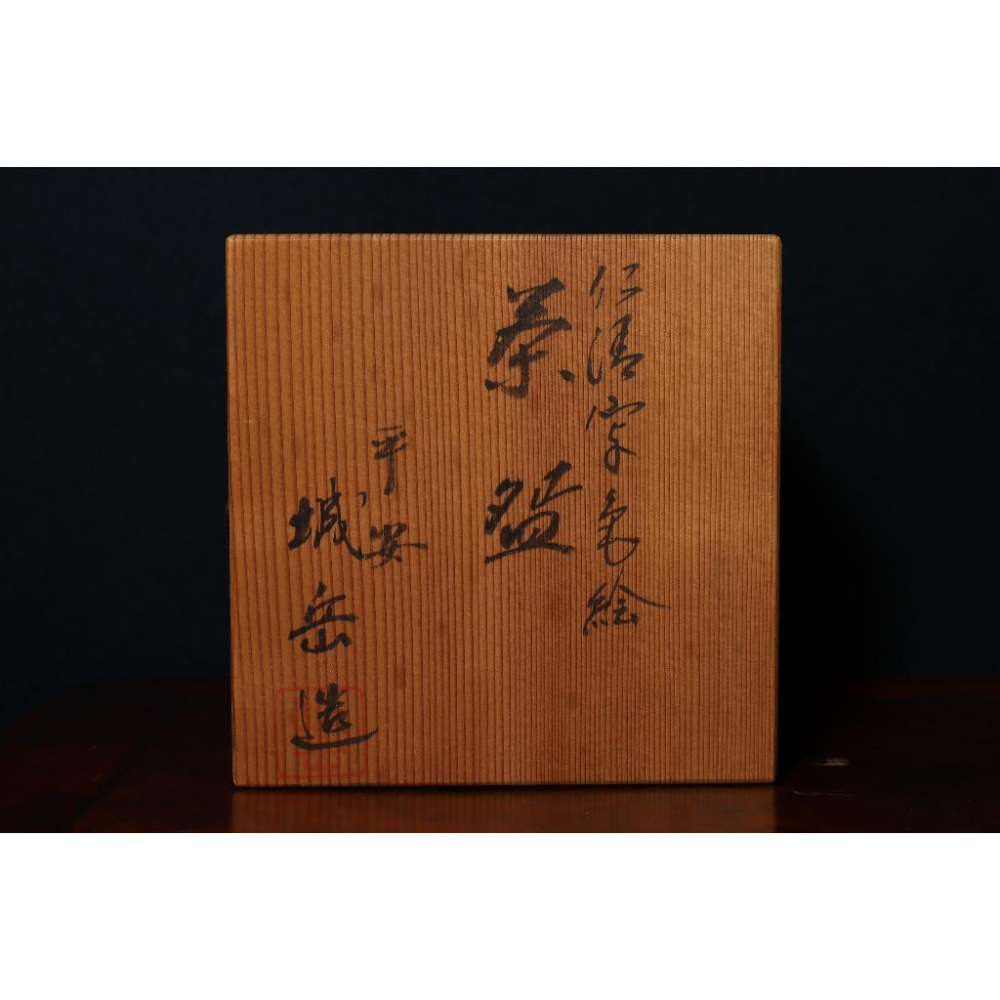 仁清写色絵
茶盌
平安
城岳造